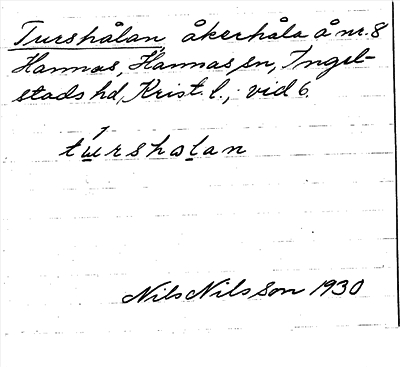 Turshålan åkerhåla å nr. 8
Hannas, Hannas sn, Ingel-
stads hd, Krist. l., vid 6.
tu̲rshal̲an
Nils Nilsson 1930